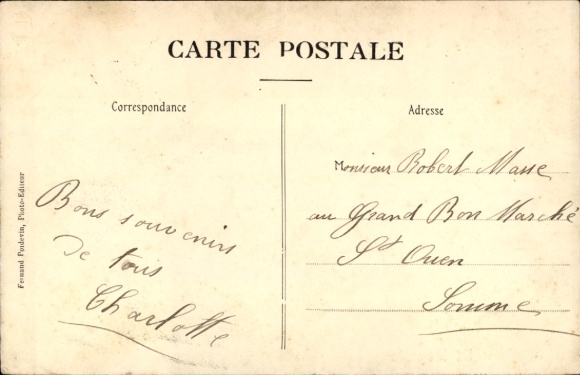 CARTE POSTALE
Correspondance
Adresse
Bons souvenirs
de tous
Charlotte
Monsieur Robert Masse
au Grand Bon Marché
St Ouen
Somme
Fernand Poidevin, Photo-Editeur